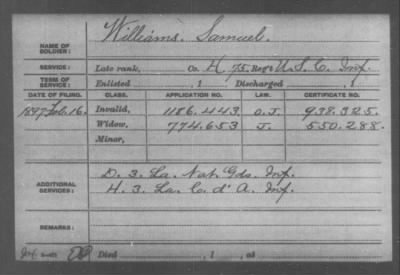 Williams. Samuel.
NAME OF SOLDIER:
SERVICE: Late rank, Co. H, 75. Reg't U.S.C. Inf.
TERM OF SERVICE: Enlisted , 1 Discharged , 1
DATE OF FILING. CLASS. APPLICATION NO. LAW. CERTIFICATE NO.
1897 Feb. 16. Invalid, 1186.443 O.J. 938.325.
Widow, 774.653 J. 550.288.
Minor,
ADDITIONAL SERVICES: D. 3. La. Nat. Gds. Inf.
H. 3. La. C. d'A. Inf.
REMARKS:
Died , 1 , at